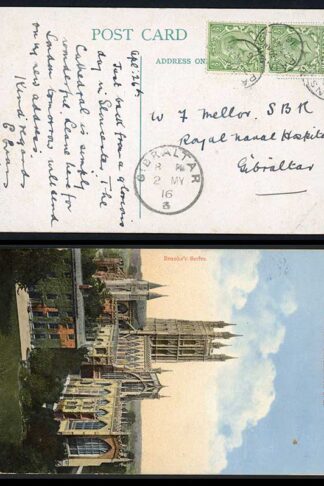 POST CARD
ADDRESS ON
Apl: 26th
Just back from a glorious
day in Gloucester. The
Cathedral is simply
wonderful. Leave here for
London tomorrow will send
on my new address.
Kind regards
E. Evans
W F Mellor. S.B.R
Royal Naval Hospital
Gibraltar
GIBRALTAR
2 MY
16
Brooke's Series.